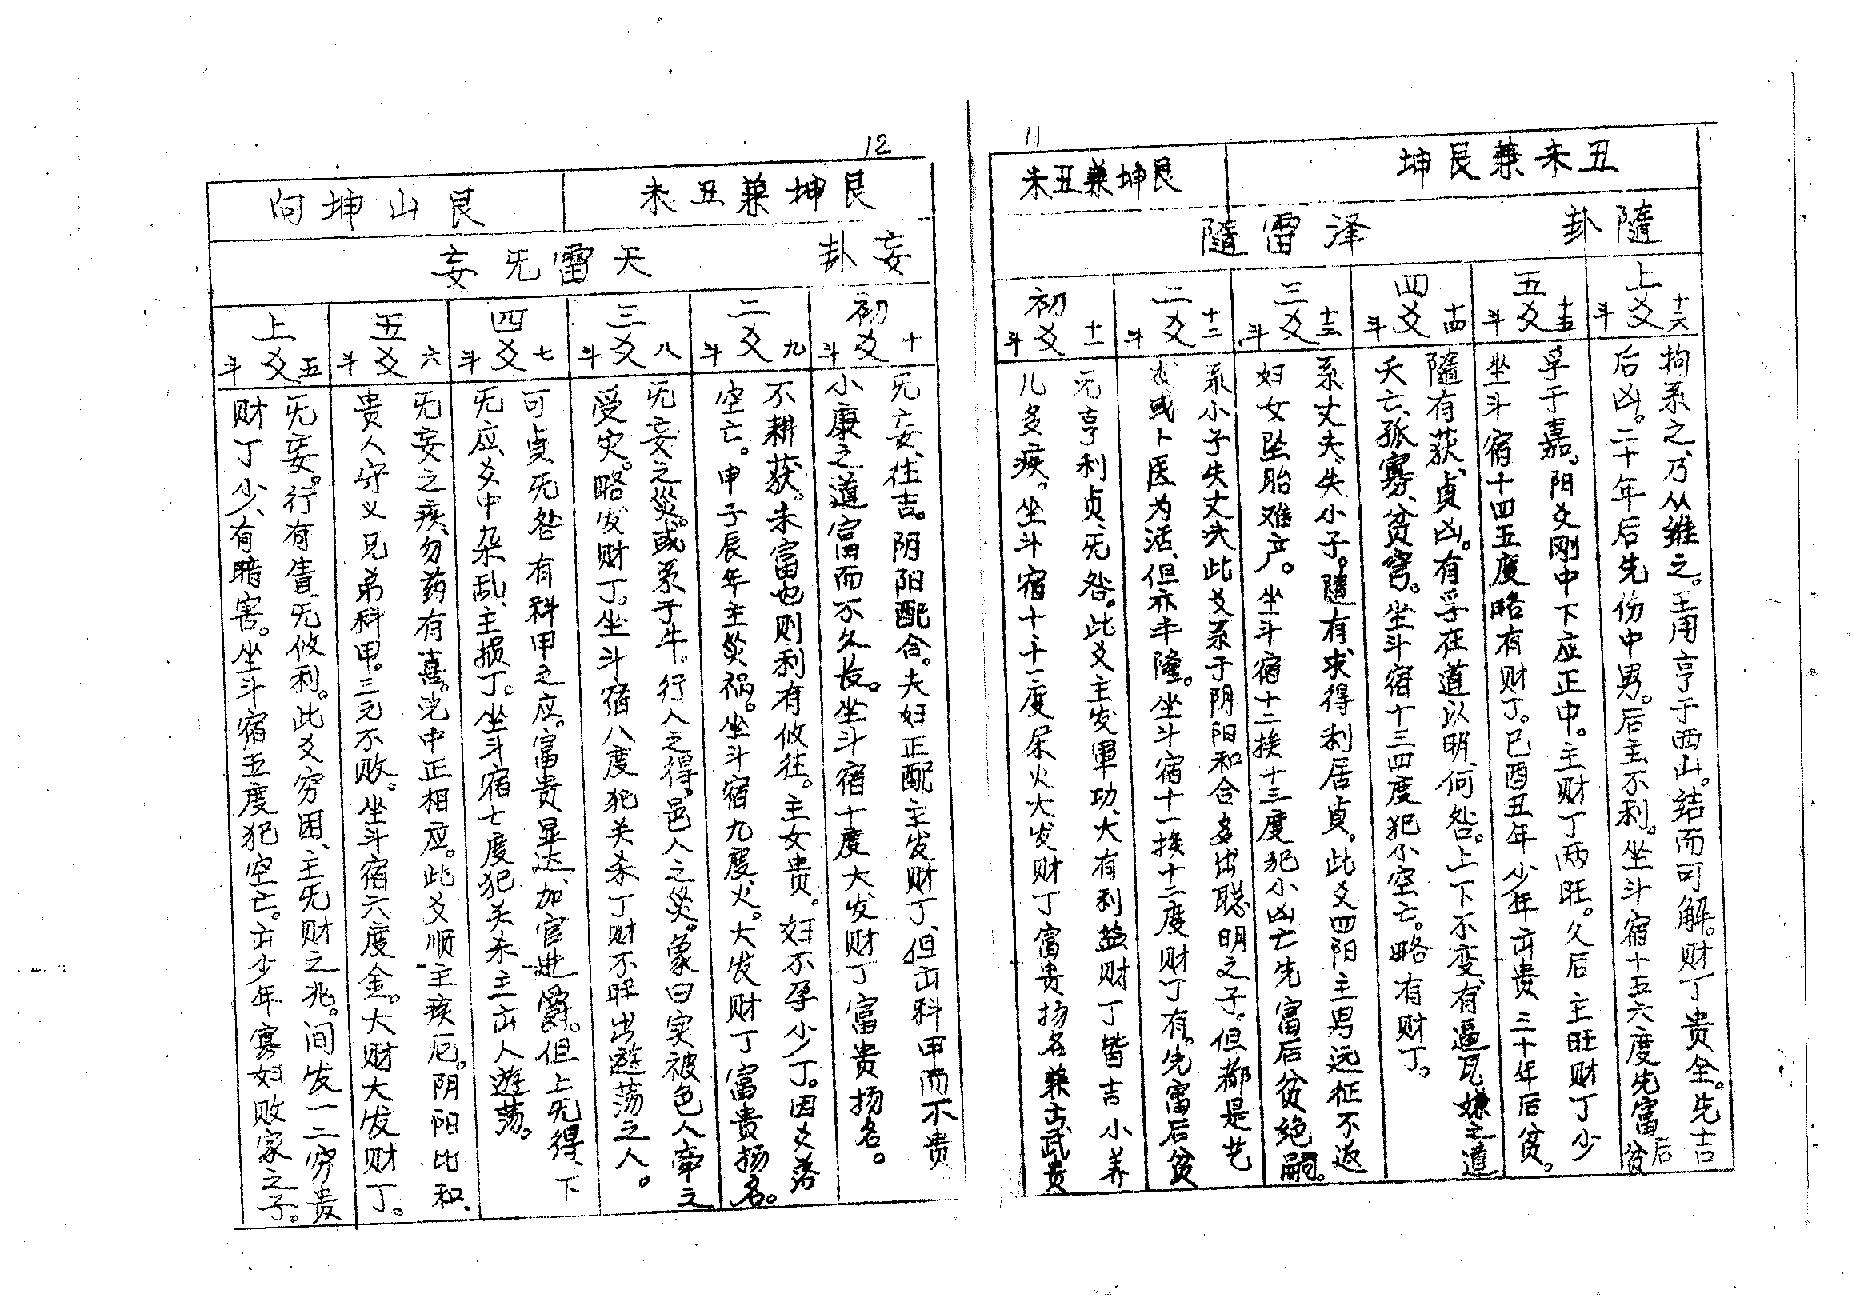 11
丑未兼艮坤
艮坤兼丑未
隨卦
泽雷隨
上爻 十六 斗
拘系之、乃从維之。王用亨于西山。结而可解。财丁贵全。先吉
后凶。二十年后先伤中男。后主不利。坐斗宿十五六度先富后贫
五爻 十五 斗
孚于嘉。阳爻刚中下应正中。主财丁两旺。久后主旺财丁少
坐斗宿十四五度略有财丁。巳酉丑年少年出贵三十年后贫。
四爻 十四 斗
隨有获、貞凶。有孚在道以明、何咎。上下不变、有逼瓦嫌之道
夭亡、孤寡、贫穷。坐斗宿十三四度犯小空亡。略有财丁。
三爻 十三 斗
系丈夫。失小子。隨有求得利居貞。此爻四阳主男远征不返
妇女坠胎难产。坐斗宿十二挨十三度犯小凶亡先富后贫绝嗣。
二爻 十二 斗
系小子失丈夫此爻系于阴阳和合多出聪明之子。但都是艺
或卜医为活、但亦丰隆。坐斗宿十一挨十二度财丁有。先富后贫
初爻 十一 斗
元亨利贞、旡咎。此爻主发軍功、大有利益财丁皆吉小养
儿多疾。坐斗宿十十一度尿火大发财丁富贵扬名兼出武贵
12
艮坤兼丑未
艮山坤向
妄卦
天雷旡妄
初爻 十 斗
旡妄、往吉。阴阳配合。夫妇正配主发财丁、但出科甲而不贵
小康之道富而不久长。坐斗宿十度大发财丁富贵扬名。
二爻 九 斗
不耕获。未富也则利有攸往。主女贵。妇不孕少丁。因爻落
空亡。申子辰年主災祸。坐斗宿九度火。大发财丁富贵扬名。
三爻 八 斗
旡妄之災。或系于牛。行人之得。邑人之災。象曰实被色人牵之
受灾。略发财丁。坐斗宿八度犯关杀丁财不旺出遊荡之人。
四爻 七 斗
可貞旡咎有科甲之应。富贵显达、加官进爵。但上旡得、下
旡应爻中杂乱、主损丁。坐斗宿七度犯关杀主出人遊荡。
五爻 六 斗
旡妄之疾、勿药有喜。况中正相应。此爻顺主疾厄。阴阳比和、
贵人守义兄弟科甲。三元不败。坐斗宿六度金。大财大发财丁。
上爻 五 斗
旡妄。行有眚、旡攸利。此爻穷困、主旡财之兆。间发一二穷贵
财丁少、有暗害。坐斗宿五度犯空亡。出少年寡妇败家之子。